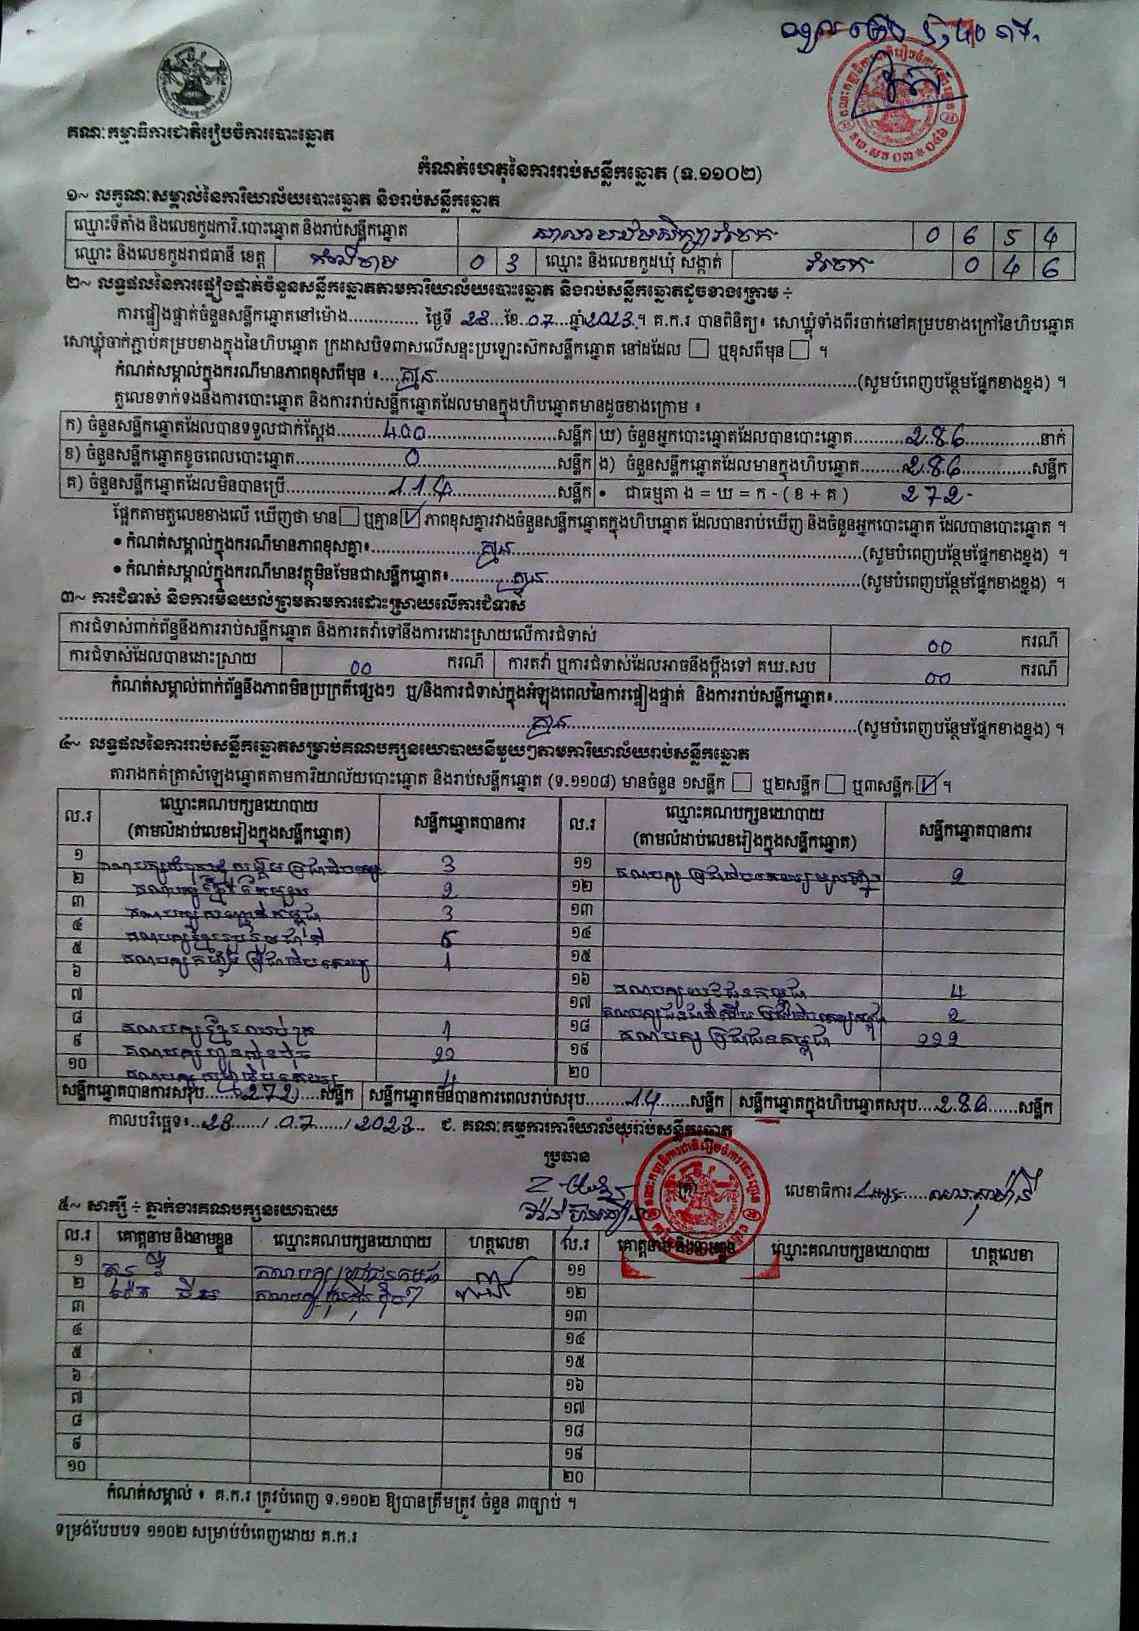 គណៈកម្មាធិការជាតិរៀបចំការបោះឆ្នោត
កំណត់ហេតុនៃការរាប់សន្លឹកឆ្នោត (ទ.១១០២)
១~ លក្ខណៈសម្គាល់នៃការិយាល័យបោះឆ្នោត និងរាប់សន្លឹកឆ្នោត
ឈ្មោះទីតាំង និងលេខកូដការិ.បោះឆ្នោត និងរាប់សន្លឹកឆ្នោត សាលាបឋមសិក្សារំចេក 0 6 5 4
ឈ្មោះ និងលេខកូដរាជធានី ខេត្ត កំពង់ចាម 0 3 ឈ្មោះ និងលេខកូដឃុំ សង្កាត់ រំចេក 0 4 6
២~ លទ្ធផលនៃការផ្ទៀងផ្ទាត់ចំនួនសន្លឹកឆ្នោតតាមការិយាល័យបោះឆ្នោត និងរាប់សន្លឹកឆ្នោតដូចខាងក្រោម ÷
ការផ្ទៀងផ្ទាត់ចំនួនសន្លឹកឆ្នោតនៅម៉ោង.............. ថ្ងៃទី 23 ខែ 07 ឆ្នាំ 2023 ។ គ.ក.រ បានពិនិត្យ៖ សោឃ្លុំទាំងពីរចាក់នៅគម្របខាងក្រៅនៃហិបឆ្នោត
សោឃ្លុំចាក់ភ្ជាប់គម្របខាងក្នុងនៃហិបឆ្នោត ក្រដាសបិទពាសលើសន្ទះប្រឡោះស៊កសន្លឹកឆ្នោត នៅដដែល ☐ ឬខុសពីមុន ☐ ។
កំណត់សម្គាល់ក្នុងករណីមានភាពខុសពីមុន ៖.... គ្មាន ....(សូមបំពេញបន្ថែមផ្នែកខាងខ្នង) ។
តួលេខទាក់ទងនឹងការបោះឆ្នោត និងការរាប់សន្លឹកឆ្នោតដែលមានក្នុងហិបឆ្នោតមានដូចខាងក្រោម ៖
ក) ចំនួនសន្លឹកឆ្នោតដែលបានទទួលជាក់ស្តែង........400........សន្លឹក ឃ) ចំនួនអ្នកបោះឆ្នោតដែលបានបោះឆ្នោត........286........នាក់
ខ) ចំនួនសន្លឹកឆ្នោតខូចពេលបោះឆ្នោត........0........សន្លឹក ង) ចំនួនសន្លឹកឆ្នោតដែលមានក្នុងហិបឆ្នោត........286........សន្លឹក
គ) ចំនួនសន្លឹកឆ្នោតដែលមិនបានប្រើ........114........សន្លឹក • ជាធម្មតា ង = ឃ = ក - ( ខ + គ ) 272
ផ្អែកតាមតួលេខខាងលើ ឃើញថា មាន ☐ ឬគ្មាន ☑ ភាពខុសគ្នារវាងចំនួនសន្លឹកឆ្នោតក្នុងហិបឆ្នោត ដែលបានរាប់ឃើញ និងចំនួនអ្នកបោះឆ្នោត ដែលបានបោះឆ្នោត ។
• កំណត់សម្គាល់ក្នុងករណីមានភាពខុសគ្នា៖........គ្មាន........(សូមបំពេញបន្ថែមផ្នែកខាងខ្នង) ។
• កំណត់សម្គាល់ក្នុងករណីមានវត្ថុមិនមែនជាសន្លឹកឆ្នោត៖........គ្មាន........(សូមបំពេញបន្ថែមផ្នែកខាងខ្នង) ។
៣~ ការជំទាស់ និងការមិនយល់ព្រមតាមការដោះស្រាយលើការជំទាស់
ការជំទាស់ពាក់ព័ន្ធនឹងការរាប់សន្លឹកឆ្នោត និងការតវ៉ាទៅនឹងការដោះស្រាយលើការជំទាស់ 00 ករណី
ការជំទាស់ដែលបានដោះស្រាយ 00 ករណី ការតវ៉ា ឬការជំទាស់ដែលអាចនឹងប្តឹងទៅ គឃ.សប 00 ករណី
កំណត់សម្គាល់ពាក់ព័ន្ធនឹងភាពមិនប្រក្រតីផ្សេងៗ ឬ/និងការជំទាស់ក្នុងអំឡុងពេលនៃការផ្ទៀងផ្ទាត់ និងការរាប់សន្លឹកឆ្នោត៖........
........គ្មាន........(សូមបំពេញបន្ថែមផ្នែកខាងខ្នង) ។
៤~ លទ្ធផលនៃការរាប់សន្លឹកឆ្នោតសម្រាប់គណបក្សនយោបាយនីមួយៗតាមការិយាល័យរាប់សន្លឹកឆ្នោត
តារាងកត់ត្រាសំឡេងឆ្នោតតាមការិយាល័យបោះឆ្នោត និងរាប់សន្លឹកឆ្នោត (ទ.១១០៨) មានចំនួន ១សន្លឹក ☐ ឬ២សន្លឹក ☐ ឬ៣សន្លឹក ☑ ។
ល.រ ឈ្មោះគណបក្សនយោបាយ (តាមលំដាប់លេខរៀងក្នុងសន្លឹកឆ្នោត) សន្លឹកឆ្នោតបានការ ល.រ ឈ្មោះគណបក្សនយោបាយ (តាមលំដាប់លេខរៀងក្នុងសន្លឹកឆ្នោត) សន្លឹកឆ្នោតបានការ
១ គណបក្សសំបុកឃ្មុំសង្គមប្រជាធិបតេយ្យ 3 ១១ គណបក្សប្រជាធិបតេយ្យមូលដ្ឋាន 2
២ គណបក្សខ្មែរ 2 ១២
៣ គណបក្ស កម្ពុជា 3 ១៣
៤ គណបក្សខ្មែររួបរួមជាតិ 5 ១៤
៥ គណបក្ស ប្រជាធិបតេយ្យ 1 ១៥
៦ ១៦ គណបក្សយុវជនកម្ពុជា 4
៧ ១៧ គណបក្ស 2
៨ គណបក្សខ្មែរឈប់ក្រ 1 ១៨ គណបក្សប្រជាជនកម្ពុជា 222
៩ គណបក្សហ៊្វុនស៊ិនប៉ិច 22 ១៩
១០ គណបក្ស 4 ២០
សន្លឹកឆ្នោតបានការសរុប....272....សន្លឹក សន្លឹកឆ្នោតមិនបានការពេលរាប់សរុប........14........សន្លឹក សន្លឹកឆ្នោតក្នុងហិបឆ្នោតសរុប...286......សន្លឹក
កាលបរិច្ឆេទ៖..23....../..07....../ 2023... ជ. គណៈកម្មការការិយាល័យរាប់សន្លឹកឆ្នោត
ប្រធាន
លេខាធិការ
៥~ សាក្សី ÷ ភ្នាក់ងារគណបក្សនយោបាយ
ល.រ គោត្តនាម និងនាមខ្លួន ឈ្មោះគណបក្សនយោបាយ ហត្ថលេខា ល.រ គោត្តនាម និងនាមខ្លួន ឈ្មោះគណបក្សនយោបាយ ហត្ថលេខា
១ គណបក្សប្រជាជនកម្ពុជា ១១
២ គណបក្សហ៊្វុនស៊ិនប៉ិច ១២
៣ ១៣
៤ ១៤
៥ ១៥
៦ ១៦
៧ ១៧
៨ ១៨
៩ ១៩
១០ ២០
កំណត់សម្គាល់ ៖ គ.ក.រ ត្រូវបំពេញ ទ.១១០២ ឱ្យបានត្រឹមត្រូវ ចំនួន ៣ច្បាប់ ។
ទម្រង់បែបបទ ១១០២ សម្រាប់បំពេញដោយ គ.ក.រ